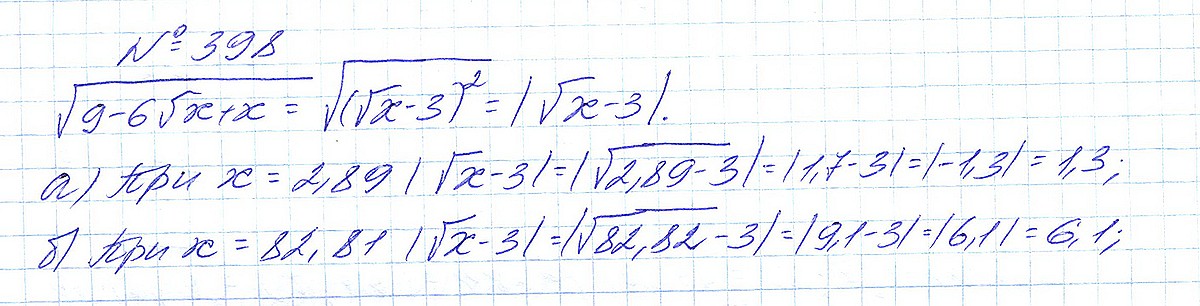 № 398
√(9-6√x+x) = √((√x-3)²) = |√x-3|.
а) При x = 2,89 |√x-3| = |√2,89-3| = |1,7-3| = |-1,3| = 1,3;
б) При x = 82,81 |√x-3| = |√82,82-3| = |9,1-3| = |6,1| = 6,1;